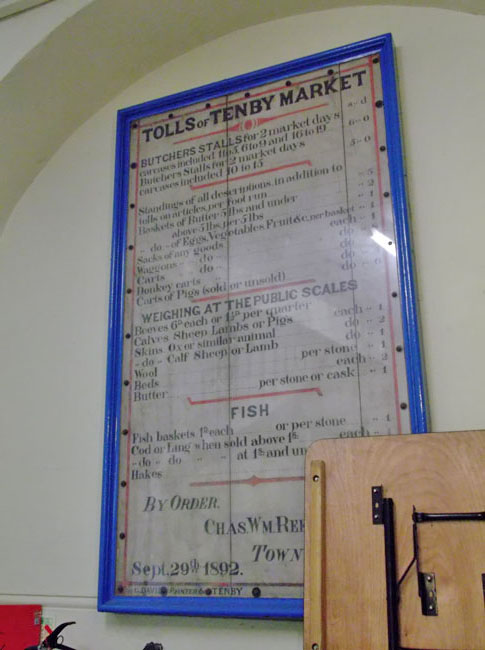 TOLLS OF TENBY MARKET
s - d
BUTCHERS STALLS for 2 market days
carcases included 1 to 5, 6 to 9 and 16 to 19 6 - 0
Butchers Stalls for 2 market days
carcases included 10 to 15 5 - 0
Standings of all descriptions, in addition to
tolls on articles, per foot run " 5
Baskets of Butter 5 lbs and under " 2
" above 5 lbs, per 5 lbs " 1
" do " of Eggs, Vegetables Fruit &c, per basket " 1
Sacks of any goods each " 1
Waggons " do do
Carts do do
Donkey carts " do
Carts of Pigs (sold or unsold) do
WEIGHING AT THE PUBLIC SCALES
Beeves 6d each or 1½d per quarter
Calves Sheep Lambs or Pigs each " 1
Skins Ox or similar animal do " 2
" do " Calf Sheep or Lamb do " 1
Wool per stone " 1
Beds each " 2
Butter per stone or cask " 1
FISH
Fish baskets 1d each or per stone " 1
Cod or Ling when sold above 1s each " 1
" do " do " " at 1s and
Hakes
BY ORDER.
CHAS. WM.
TOWN
Sept. 29th 1892.
PAINTER TENBY